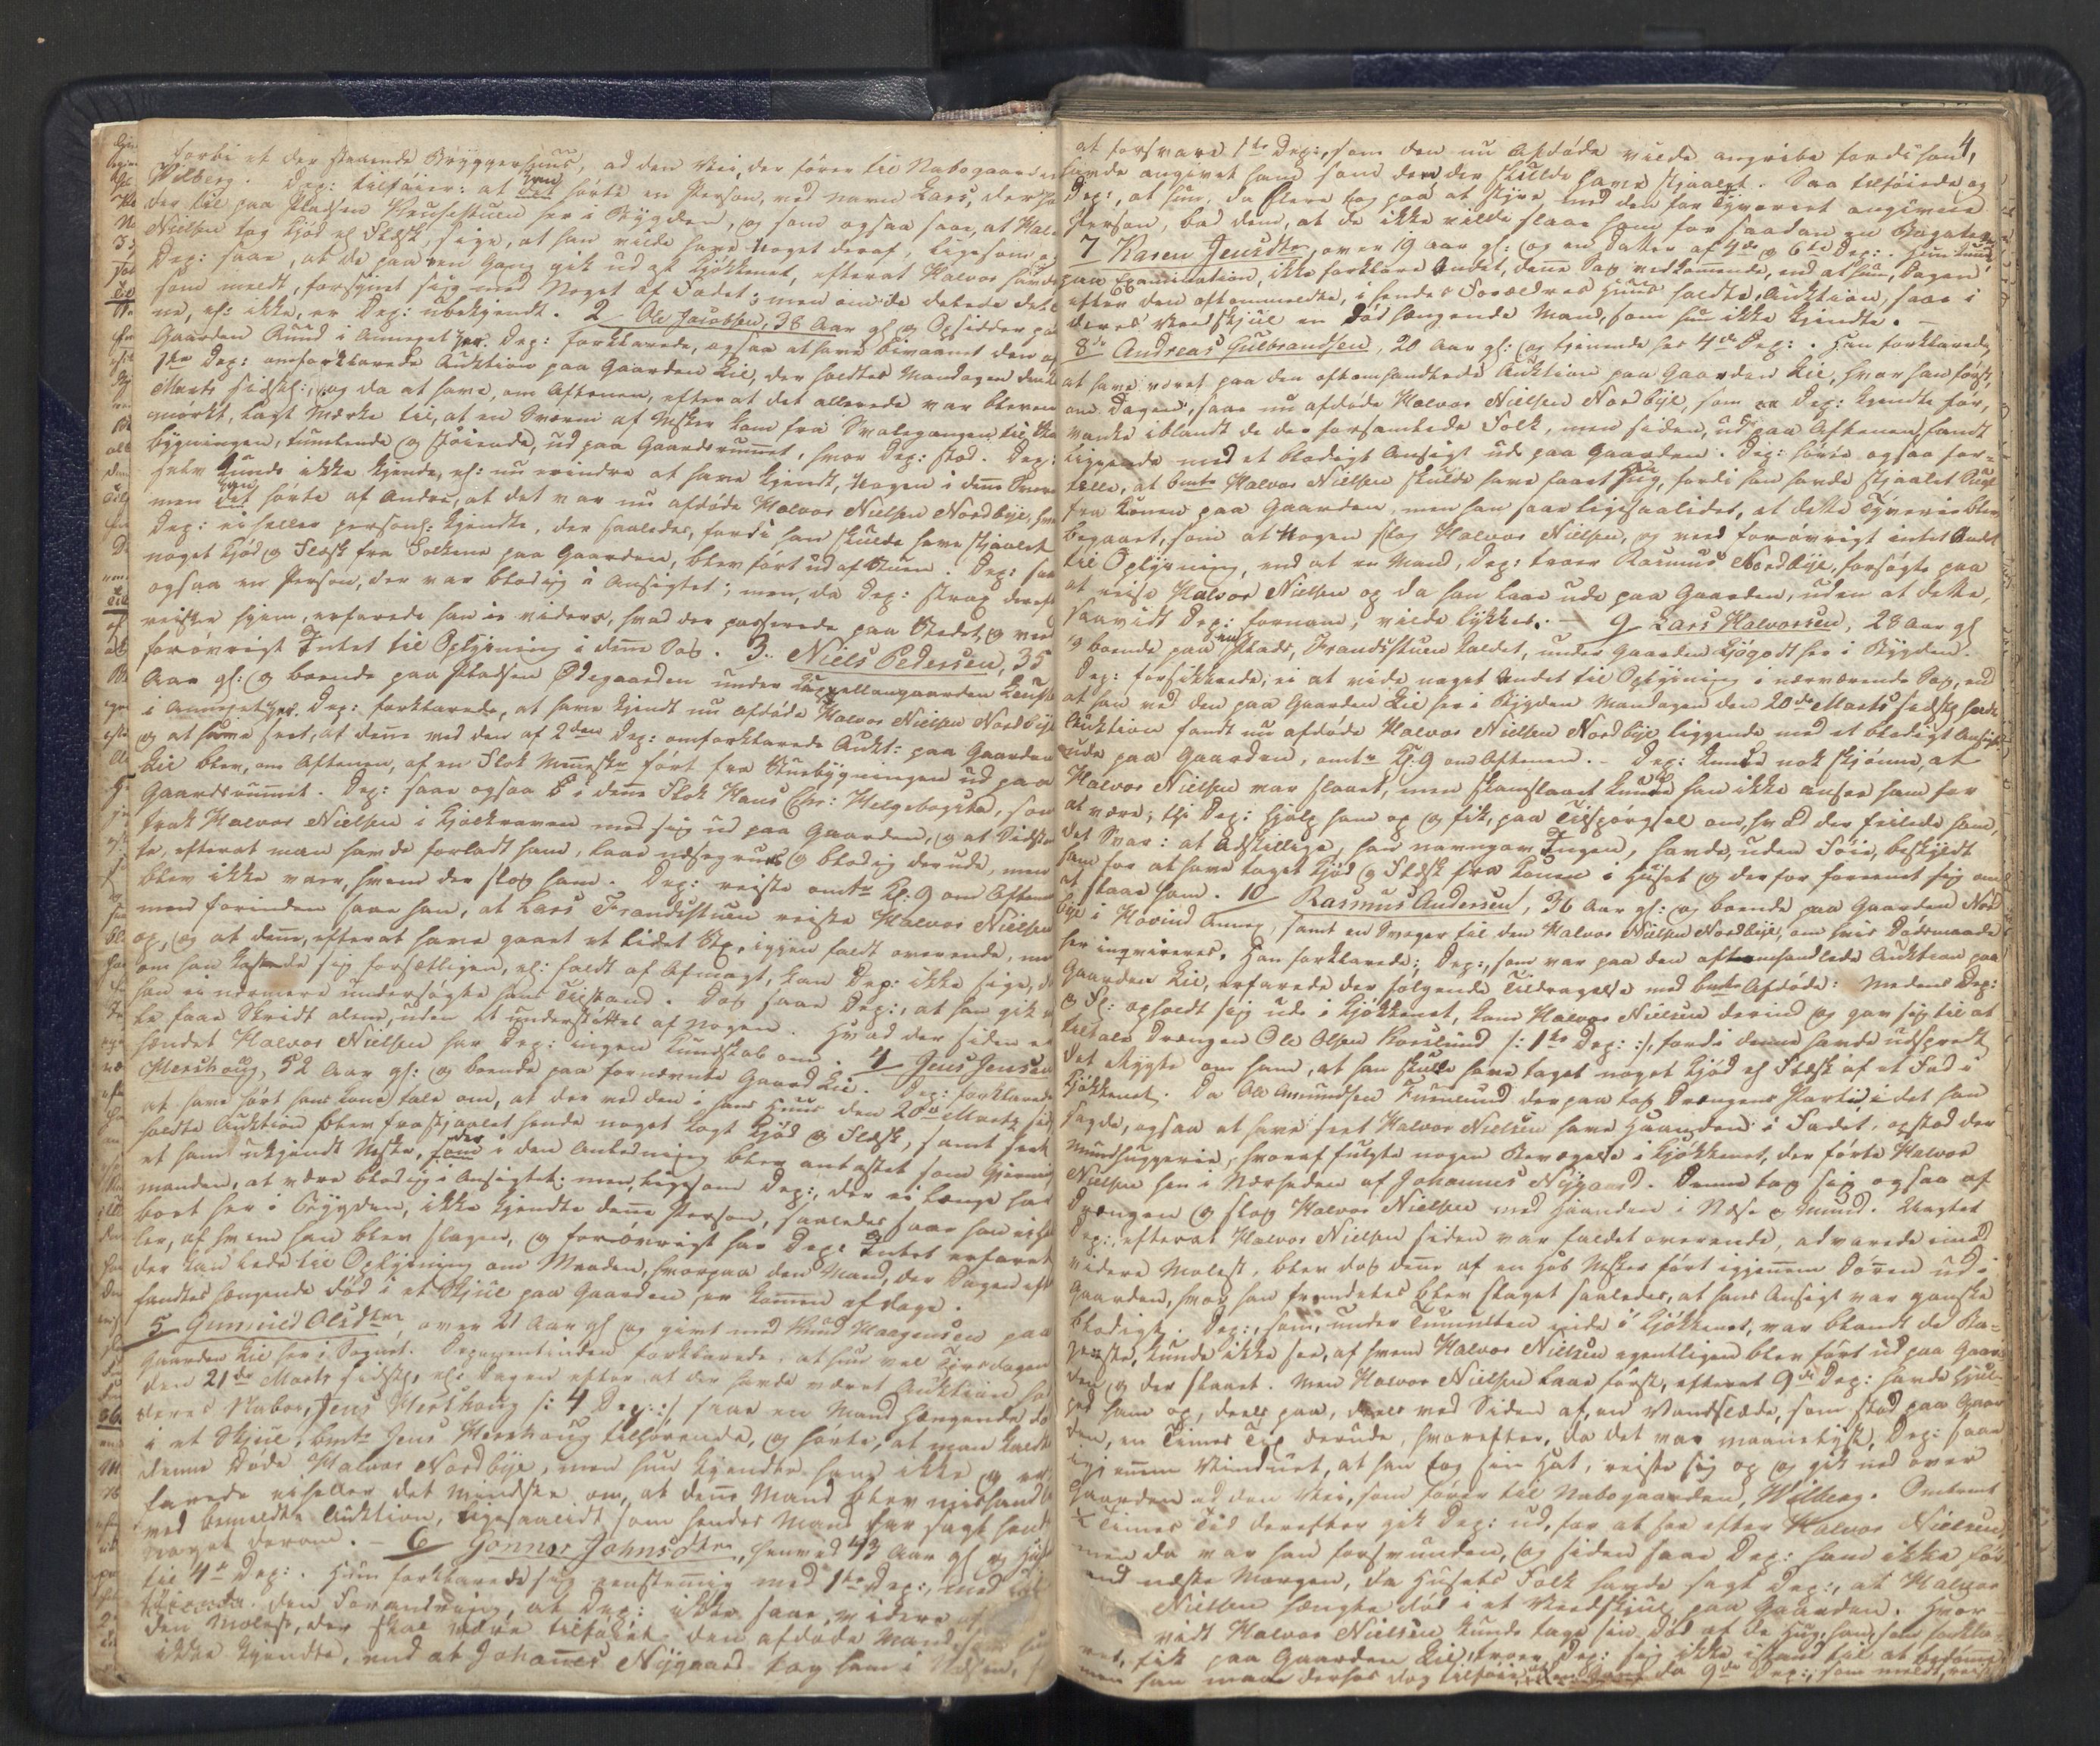 forbi et der staaende Bryggerhuus, ad den Vei, der fører til Nabogaarden
Wilberg. Dep: tilføier: at han hørte en Person, ved Navn Lars, der hø-
der til paa Pladsen her i Bygden, og som ogsaa saae, at Hal-
Nielsen tog Kjød el Flesk, sige, at han vilde have noget deraf, ligesom og
Dep: saae, at de paa een Gang gik ud af Kjøkkenet, efterat Halvor havde
som meldt, forsynet sig med Noget af Fadet; men om de deelede det-
ne, el: ikke, er Dep: ubekjendt. 2 Ole Jacobsen, 38 Aar gl og Opsidder paa
Gaarden Ruud i Annexet her. Dep: forklarede, ogsaa at have bivaanet den af
1ste Dep: omforklarede Auktion paa Gaarden Lie, der holdtes Mandagen den 20
Marts sidstl:, og da at have, om Aftenen, efterat det allerede var bleven
mørkt, lagt Mærke til, at en Sværm af Msker kom fra Svalegangen til
bygningen, tumlende og støiende, ud paa Gaardsrummet, hvor Dep: stod. Dep:
selv kunde ikke kjende, el: nu erindre at have kjendt, Nogen i denne Sværm
men han hørte af Andre, at det var nu afdøde Halvor Nielsen Nordbye, hvem
Dep: ei heller personl: kjendte, der saaledes, fordi han skulde have stjaalet
noget Kjød og Flesk fra Folkene paa Gaarden, blev ført ud af Stuen. Dep: saae
ogsaa en Person, der var blodig i Ansigtet; men, da Dep: strax derefter
reiste hjem, erfarede han ei videre, hvad der passerede paa Stedet, og veed
forøvrigt Intet til Oplysning i denne Sag. 3. Niels Pedersen, 35
Aar gl: og boende paa Pladsen Ødegaarden under Kappellangaarden
i Annexet her. Dep: forklarede, at have kjendt nu afdøde Halvor Nielsen Nordbye
og at have seet, at denne ved den af 2den Dep: omforklarede Aukt: paa Gaarden
Lie blev, om Aftenen, af en Flok Mennesker ført fra Stuebygningen ud paa
Gaardsrummet. Dep: saae ogsaa i denne Flok Hans Chr: Helgebogstad, som
trak Halvor Nielsen i Kjolekraven med sig ud paa Gaarden, og at Sidstn-
te, efterat man havde forladt ham, laae næsegruus og blodig derude, men
blev ikke vaer, hvem der slog ham. Dep: reiste omtr Kl: 9 om Aftenen
men forinden saae han, at Lars Frandsstuen reiste Halvor Nielsen
op, og at denne, efterat have gaaet et lidet Sty, igjen faldt overende, men
om han kastede sig forsætligen, el: faldt af Afmagt, kan Dep: ikke sige, da
han ei nærmere undersøgte hans Tilstand. Dog saae Dep:, at han gik
faae Skridt alene, uden at understøttes af Nogen. Hvad der siden er
hændet Halvor Nielsen har Dep: ingen Kundskab om. 4 Jens Jensen
Mershoug, 52 Aar gl: og boende paa fornævnte Gaard Lie. Dep: forklarede
at have hørt hans Kone tale om, at der ved den i hans Huus den 20de Marts sidstl
holdte Auktion blev frastjaalet hende noget kogt Kjød og Flesk, samt seet
et ham ukjendt Mske, der i den Anledning blev antastet som Gjernings-
manden, at være blodig i Ansigtet; men, ligesom Dep:, der ei længe har
boet her i Bygden, ikke kjendte denne Person, saaledes saae han ei hel-
ler, af hvem han blev slagen, og forøvrigt har Dep: Intet erfaret
der kan lede til Oplysning om Maaden, hvorpaa den Mand, der Dagen efter
fandtes hængende død i et Skjul paa Gaarden, er kommen af Dage.
5 Gunnild Olsdtr, over 21 Aar gl og givt med Knud Haagensen paa
Gaarden Lie her i Sognet. Deponentinden forklarede, at hun vel Tirsdagen
den 21de Marts sidstl, el: Dagen efter at der havde været Auktion hos
deres Nabo, Jens Mershoug /: 4 Dep: :/ saae en Mand hængende død
i et Skjul, bmte Jens Mershoug tilhørende, og hørte, at man kaldte
denne Døde Halvor Nordbye, men hun kjendte ham ikke, og er-
farede ei heller det mindste om, at denne Mand blev mishandlet
ved bemeldte Auktion, ligesaalidt som hendes Mand har sagt hende
Noget derom. — 6 Gonnor Johnsdtr, henved 43 Aar gl og gift
til 4de Dep: . Hun forklarede sig eenstemmig med 1ste Dep:, med
den Forandring, at Dep: ikke saae videre af
den Molest, der skal være tilføiet den afdøde Mand, som hun
ikke kjendte, end at Johannes Nygaard tog ham i Næsen,
4,
at forsvare 1ste Dep:, som den nu Afdøde vilde angribe fordi han
havde angivet ham som den der skulde have stjaalet. Saa tilføiede og
Dep:, at hun, da Flere tog paa at styre med den for Tyveriet angivne
Person, bad dem, at de ikke vilde slaae ham for saadan en Bagatel.
7 Karen Jensdtr, over 19 Aar gl: og en Datter af 4de og 6te Dep: . Hun kunde
paa Examination, ikke forklare Andet, denne Sag vedkommende, end at hun, Dagen
efter den oftommeldte, i hendes Forældres Huus holdte, Auktion, saae i
deres Veedskjul en død hængende Mand, som hun ikke kjendte. —
8de Andreas Gulbrandsen, 20 Aar gl: og tjenende hos 4de Dep: . Han forklarede
at have været paa den oftomhandlede Auktion paa Gaarden Lie, hvor han først,
om Dagen, saae nu afdøde Halvor Nielsen Nordbye, som Dep: kjendte før,
vanke iblandt de der forsamlede Folk, men siden, ud paa Aftenen, fandt
liggende med et blodigt Ansigt ude paa Gaarden. Dep: hørte ogsaa for-
tælle, at bmte Halvor Nielsen skulde have faaet Hug, fordi han havde stjaalet Suul
fra Konen paa Gaarden, men han saae ligesaalidet, at dette Tyverie blev
begaaet, som at Nogen slog Halvor Nielsen, og veed forøvrigt intet Andet
til Oplysning, end at en Mand, Dep: troer Rasmus Nordbye, forsøgte paa
at reise Halvor Nielsen op da han laae ude paa Gaarden, uden at dette,
saavidt Dep: fornam, vilde lykkes. — 9 Lars Halvorsen, 28 Aar gl
og boende paa en Plads, Frandsstuen kaldet, under Gaarden Kjøgodt her i Bygden.
Dep: forsikkrede, ei at vide noget Andet til Oplysning i nærværende Sag, end
at han ved den paa Gaarden Lie her i Bygden Mandagen den 20de Marts sidstl holdte
Auktion fandt nu afdøde Halvor Nielsen Nordbye liggende med et blodigt Ansigt
ude paa Gaarden, omtr Kl: 9 om Aftenen. — Dep: kunde nok skjønne, at
Halvor Nielsen var slaaet, men skamslaaet kunde han ikke ansee ham for
at være; thi Dep: hjalp ham op og fik, paa Tilspørgsel om, hvad der feilede ham,
det Svar: at Adskillige, han navngav Ingen, havde, uden Føie, beskyldt
ham for at have taget Kjød og Flesk fra Konen i Huset og derfor forenet sig om
at slaae ham. 10 Rasmus Andersen, 36 Aar gl: og boende paa Gaarden Nord-
bye i Hovind Annex, samt en Svoger til den Halvor Nielsen Nordbye, om hvis Dødsmaade
her inqvireres. Han forklarede; Dep:, som var paa den oftomhandlede Auktion paa
Gaarden Lie, erfarede der følgende Tildragelse med bmte Afdøde: Medens Dep:
og Fl: opholdt sig ude i Kjøkkenet, kom Halvor Nielsen derind og gav sig til at
tiltale Drengen Ole Olsen Korslund /: 1ste Dep: :/, fordi denne havde udspredt
det Rygte om ham, at han skulde have taget noget Kjød og Flesk af et Fad i
Kjøkkenet. Da Ole Amundsen Furulund derpaa tog Drengens Parti, i det han
sagde, ogsaa at have seet Halvor Nielsen have Haanden i Fadet, opstod der
Mundhuggerie, hvoraf fulgte nogen Bevægelse i Kjøkkenet, der førte Halvor
Nielsen hen i Nærheden af Johannes Nygaard. Denne tog sig ogsaa af
Drengen og slog Halvor Nielsen med Haanden i Næse og Mund. Uagtet
Dep:, efterat Halvor Nielsen siden var faldet overende, advarede imod
videre Molest, blev dog denne af en Hob Msker ført igjennem Døren ud i
Gaarden, hvor han fremdeles blev slaget saaledes, at hans Ansigt var ganske
blodigt. Dep:, som, under Tumulten inde i Kjøkkenet, var blandt de Ba-
gerste, kunde ikke see, af hvem Halvor Nielsen egentligen blev ført ud paa Gaar-
den og der slaaet. Men Halvor Nielsen laae først, efterat 9de Dep: havde hjul-
pet ham op, deels paa, deels ved Siden af, en Vandslæde, som stod paa Gaar-
den, en Times Tid derude, hvorefter, da det var maanelyst, Dep: saae
igjennem Vinduet, at han tog sin Hat, reiste sig op og gik ned over
Gaarden ad den Vei, som fører til Nabogaarden, Wilberg. Omtrent
½ Times Tid derefter gik Dep: ud, for at see efter Halvor Nielsen,
men da var han forsvunden, og siden saae Dep: ham ikke før
end næste Morgen, da Husets Folk havde sagt Dep:, at Halvor
Nielsen hængte død i et Veedskjul paa Gaarden. Hvor-
vidt Halvor Nielsen kunde tage sin Død af de Hug, han, som forkla-
ret, fik paa Gaarden Lie, troer Dep: sig ikke istand til at bedømme,
men han maae derhos dog tilføie, da 9de Dep:, som meldt, reiste